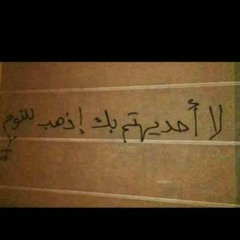 لا أحد يهتم بك إذهب للنوم